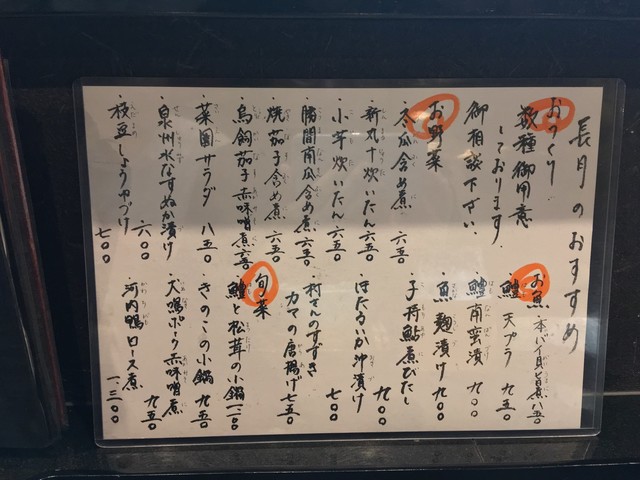 長月のおすすめ
おつくり
数種御用意
しております
御相談下さい。
お野菜
・冬瓜含め煮 六五〇
・新丸十炊いたん 六五〇
・小芋炊いたん 六五〇
・勝間南瓜含め煮 六五〇
・焼茄子含め煮 六五〇
・鳥飼茄子赤味噌煮 六五〇
・菜園サラダ 八五〇
・泉州水なすぬか漬け 六〇〇
・枝豆しょうゆづけ 七〇〇
お魚
・本バイ貝旨煮 八五〇
・鱧天プラ 九五〇
・鱧南蛮漬 九〇〇
・魚麹漬け 九〇〇
・子持鮎煮びたし 九〇〇
・ほたるいか沖漬け 七〇〇
・村さんのすずき
カマの唐揚げ 七五〇
旬菜
・鱧と松茸の小鍋
・きのこの小鍋 九五〇
・犬鳴ポーク赤味噌煮 九五〇
・河内鴨ロース煮 一、三〇〇